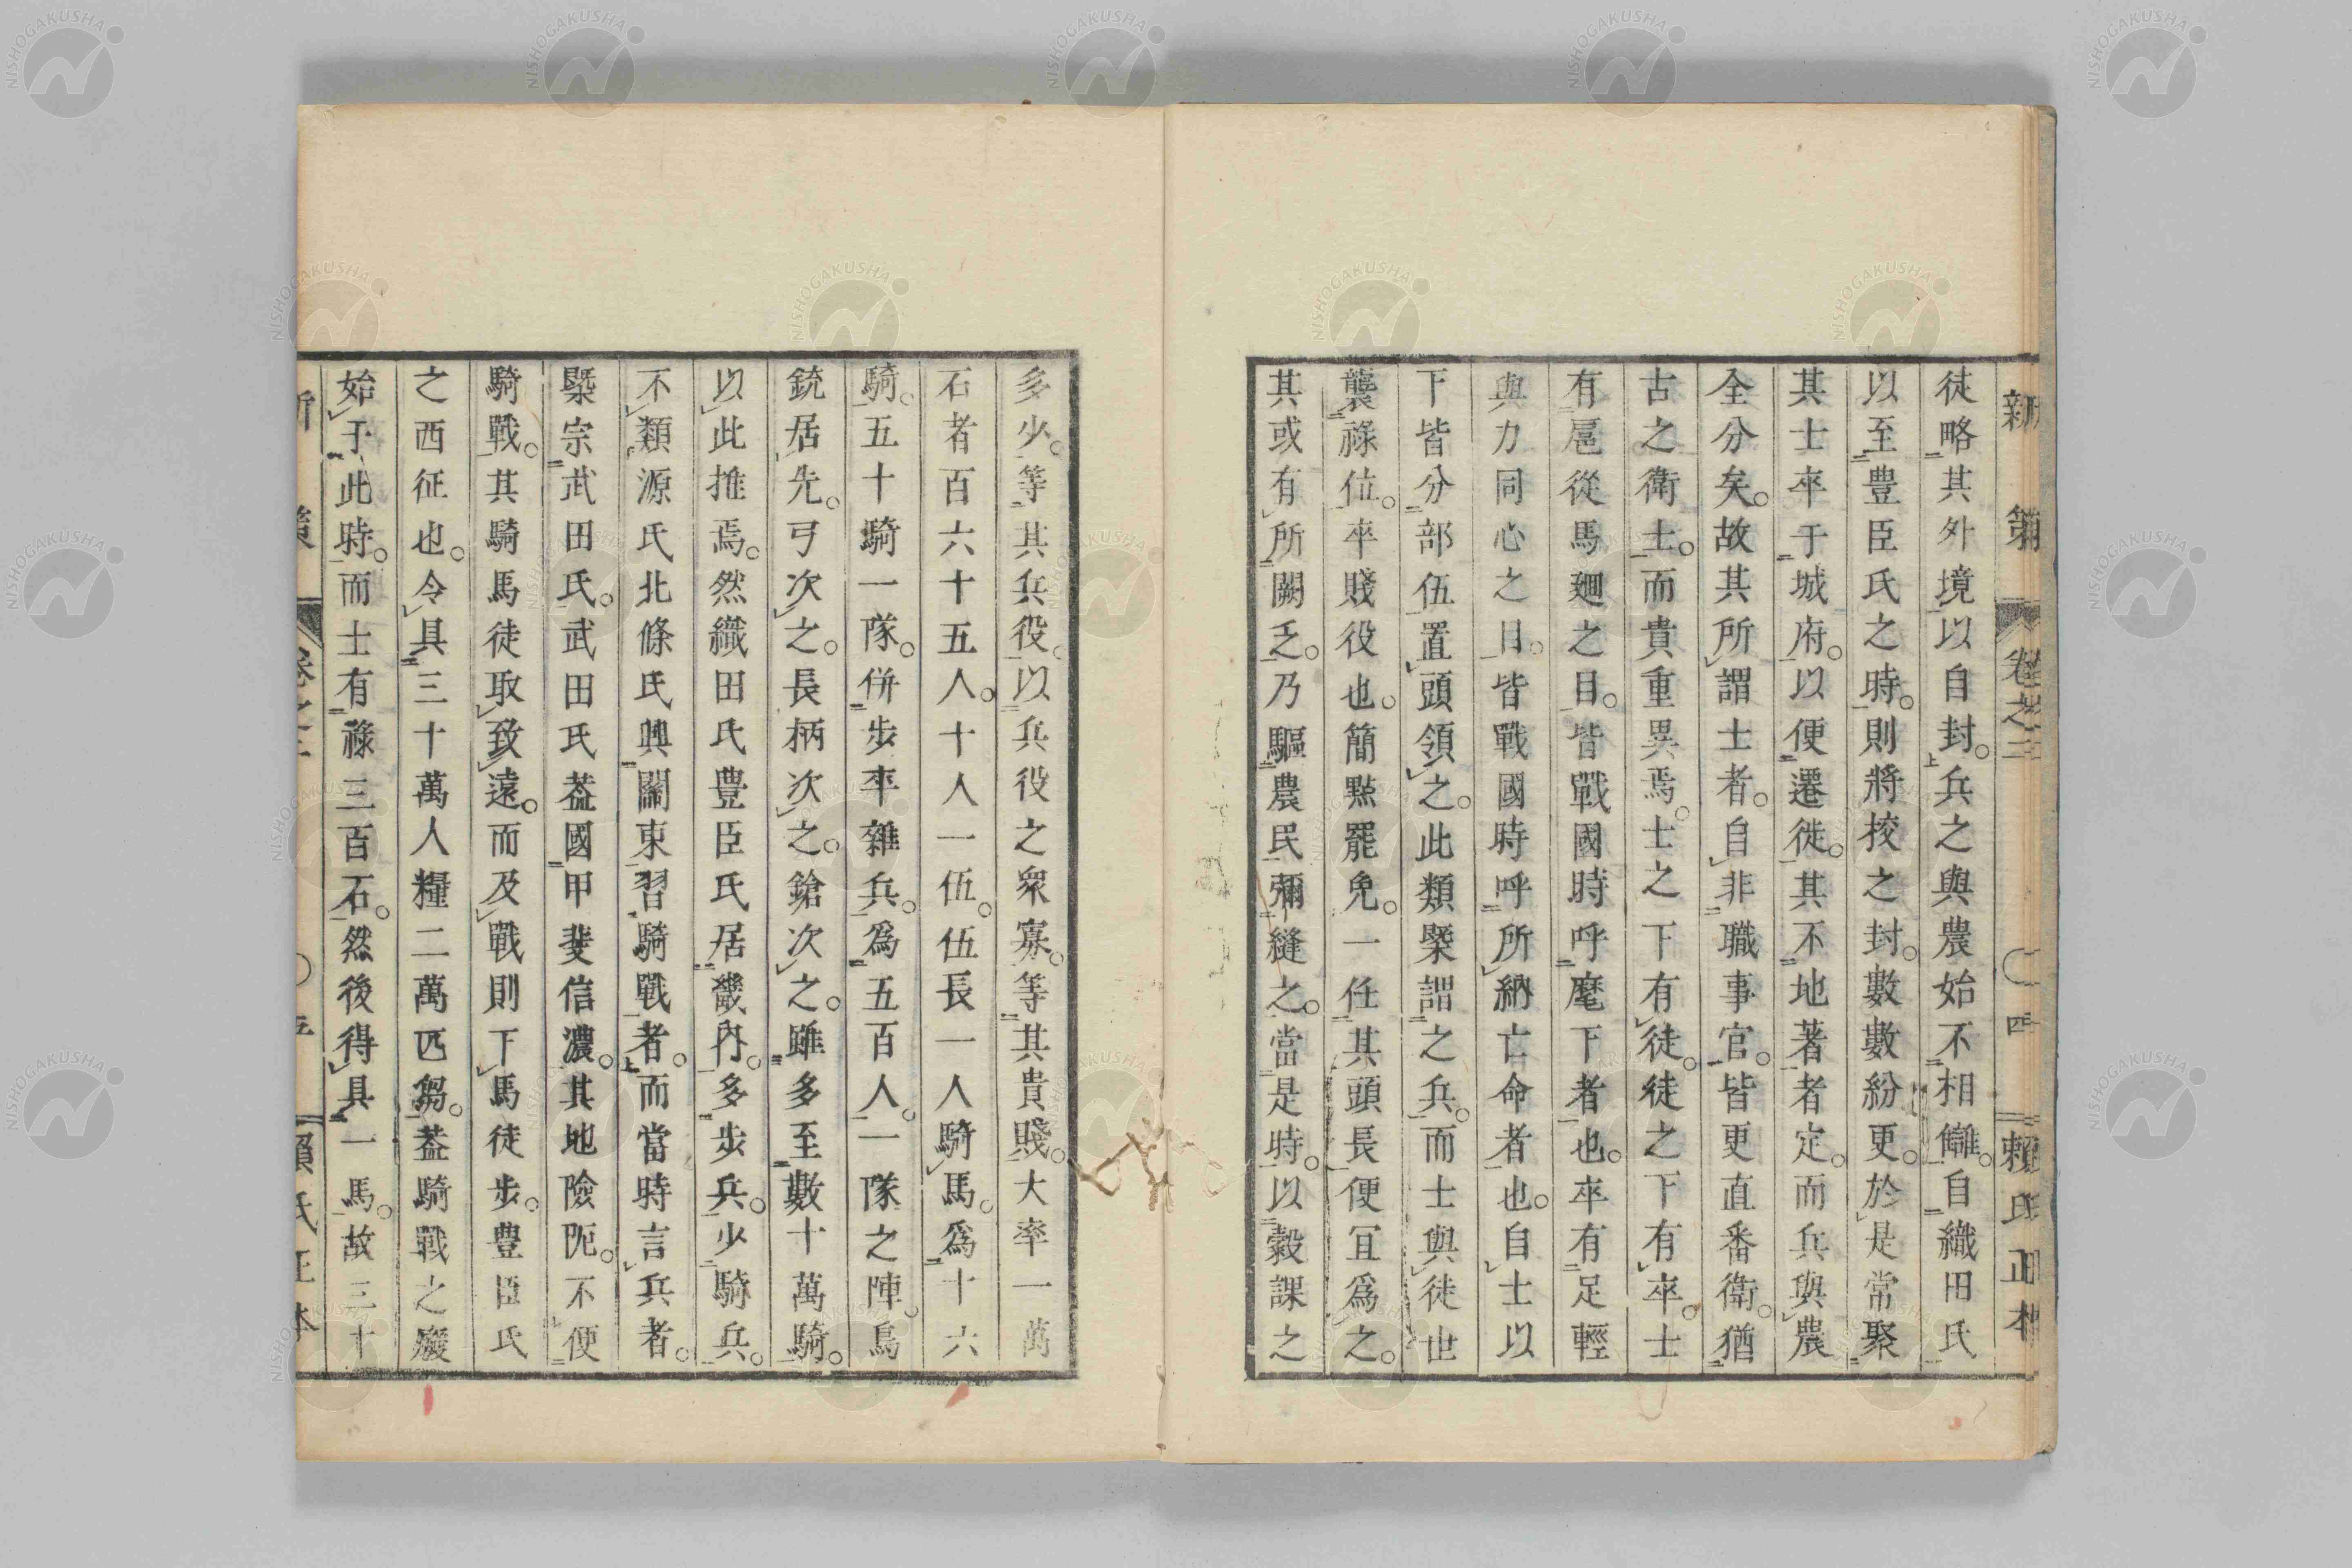 新策 卷之三 〇四 賴氏正本
徒略其外境以自封。兵之與農始不相讎。自織田氏
以至豊臣氏之時。則將挍之封。數數紛更。於是常聚
其士卒于城府。以便遷徙。其不地著者定。而兵與農
全分矣。故其所謂士者。自非職事官。皆更直番衛。猶
古之衛士。而貴重異焉。士之下有徒。徒之下有卒。士
有扈從馬廻之目。皆戰國時呼麾下者也。卒有足輕
與力同心之目。皆戰國時呼所納亡命者也。自士以
下皆分部伍置頭領之。此類槩謂之兵。而士與徒世
襲祿位。卒賤役也。簡點罷免。一任其頭長便冝爲之。
其或有所闕乏。乃驅農民彌縫之。當是時。以穀課之
多少。等其兵役。以兵役之衆寡。等其貴賤。大率一萬
石者百六十五人。十人一伍。伍長一人騎馬。爲十六
騎。五十騎一隊。併步卒雜兵。爲五百人。一隊之陣。鳥
銃居先。弓次之。長柄次之。鎗次之。雖多至數十萬騎。
以此推焉。然織田氏豊臣氏居畿内。多步兵。少騎兵。
不類源氏北條氏興關東習騎戰者。而當時言兵者。
槩宗武田氏。武田氏葢國甲斐信濃。其地險阨。不便
騎戰。其騎馬徒取致遠。而及戰則下馬徒步。豊臣氏
之西征也。令具三十萬人糧二萬匹芻。葢騎戰之廢
始于此時。而士有祿三百石。然後得具一馬。故三十
NISHOGAKUSHA